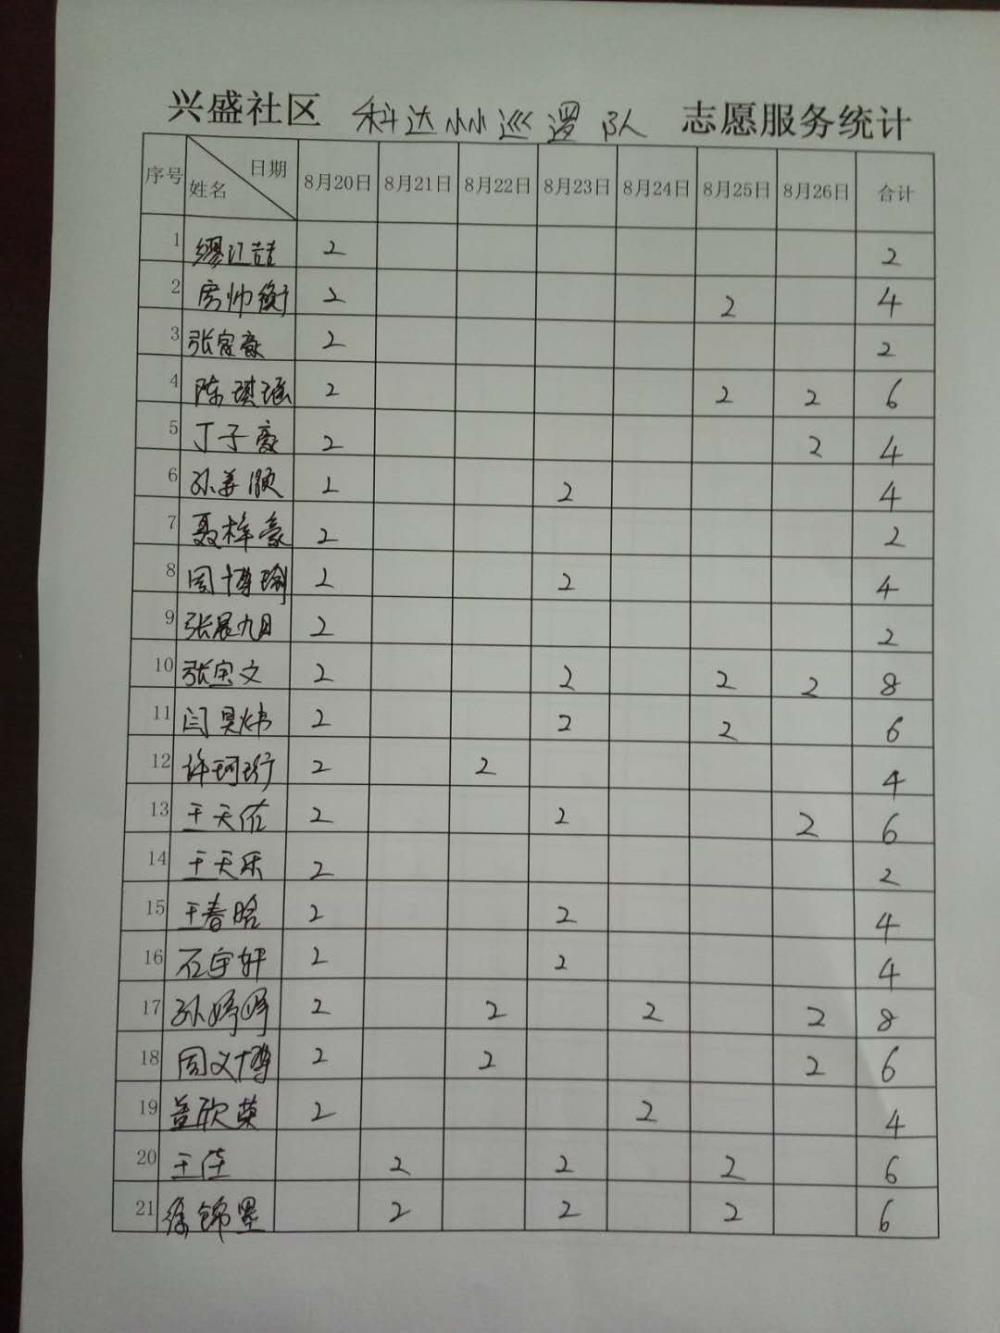 兴盛社区 科达小小巡逻队 志愿服务统计
序号 日期 姓名 8月20日 8月21日 8月22日 8月23日 8月24日 8月25日 8月26日 合计
1 缪江喆 2 2
2 房帅衡 2 2 4
3 张家豪 2 2
4 陈琪瑶 2 2 2 6
5 丁子豪 2 2 4
6 孙美顺 2 2 4
7 聂梓豪 2 2
8 周博瑜 2 2 4
9 张晨旭 2 2
10 张宝文 2 2 2 2 8
11 闫昊炜 2 2 2 6
12 许珂珩 2 2 4
13 王天佑 2 2 2 6
14 王天乐 2 2
15 王春晗 2 2 4
16 石宇轩 2 2 4
17 孙婷婷 2 2 2 2 8
18 周文博 2 2 2 6
19 盖欣荣 2 2 4
20 王佳 2 2 2 6
21 徐锦墨 2 2 2 6